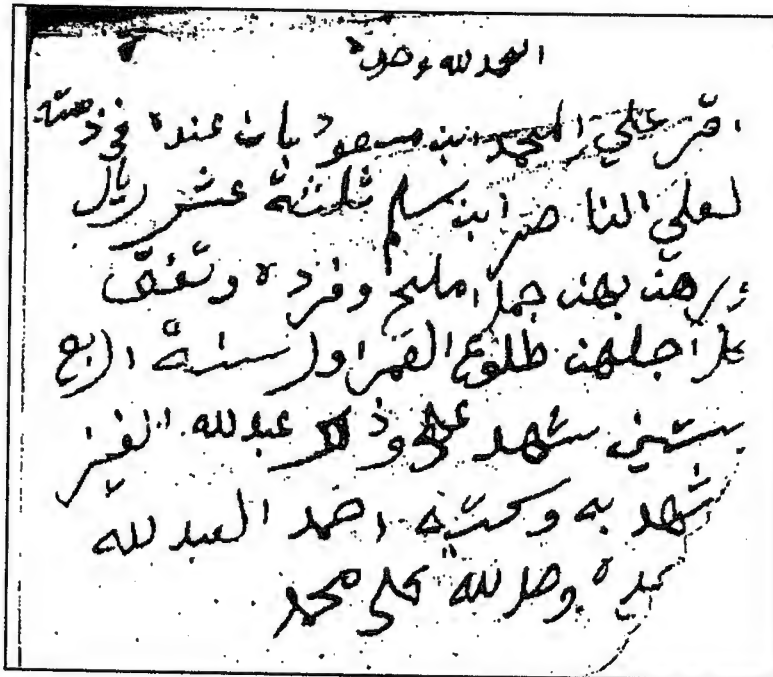 الحمد لله وحده
اقر علي المحمد ابن سعود بان عنده في ذمته
لعلي الناصر ابن سلم ثلثة عشر ريال
جمل املح وفرده
اجلهن طلوع القمر اول سنة اربع
ستين شهد علي وذلك عبدلله
شهد به وكتبه احمد العبدلله
وصل لله على محمد